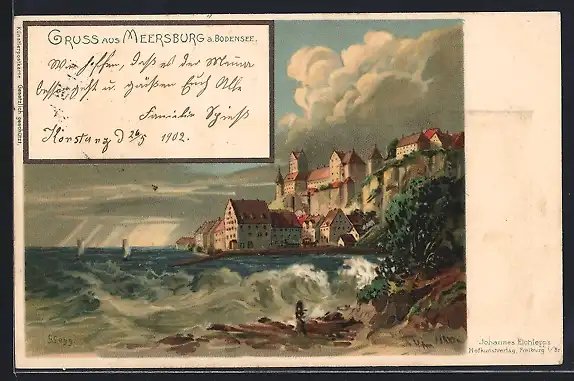 GRUSS AUS MEERSBURG a. BODENSEE.
Wir hoffen, daß es der Mina
besser geht u. grüßen Euch Alle
Familie Spieß
26/5 1902.
Künstlerpostkarte. Gesetzlich geschützt.
Johannes Elchlepp's
Hofkunstverlag, Freiburg i/Br.